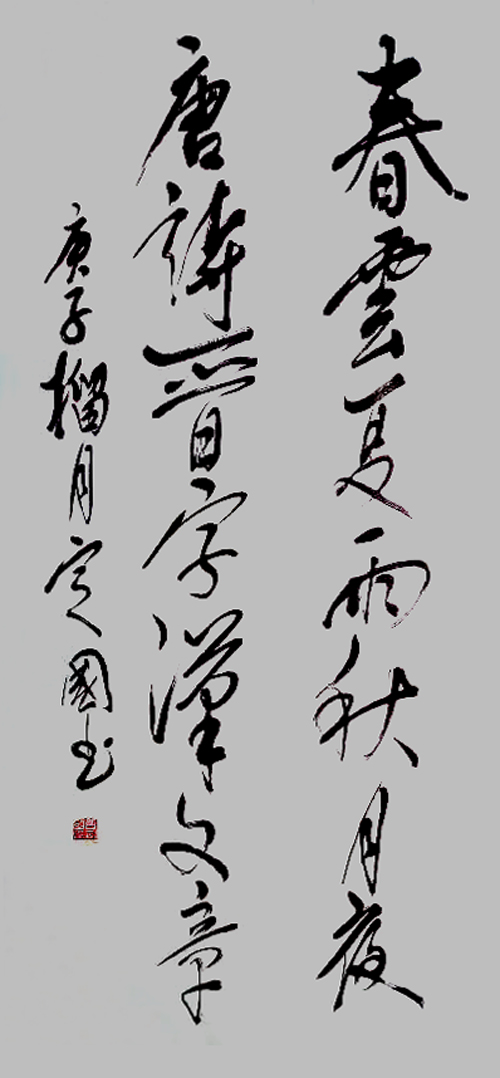 春雲夏雨秋月夜
唐詩晉字漢文章
庚子榴月定國书